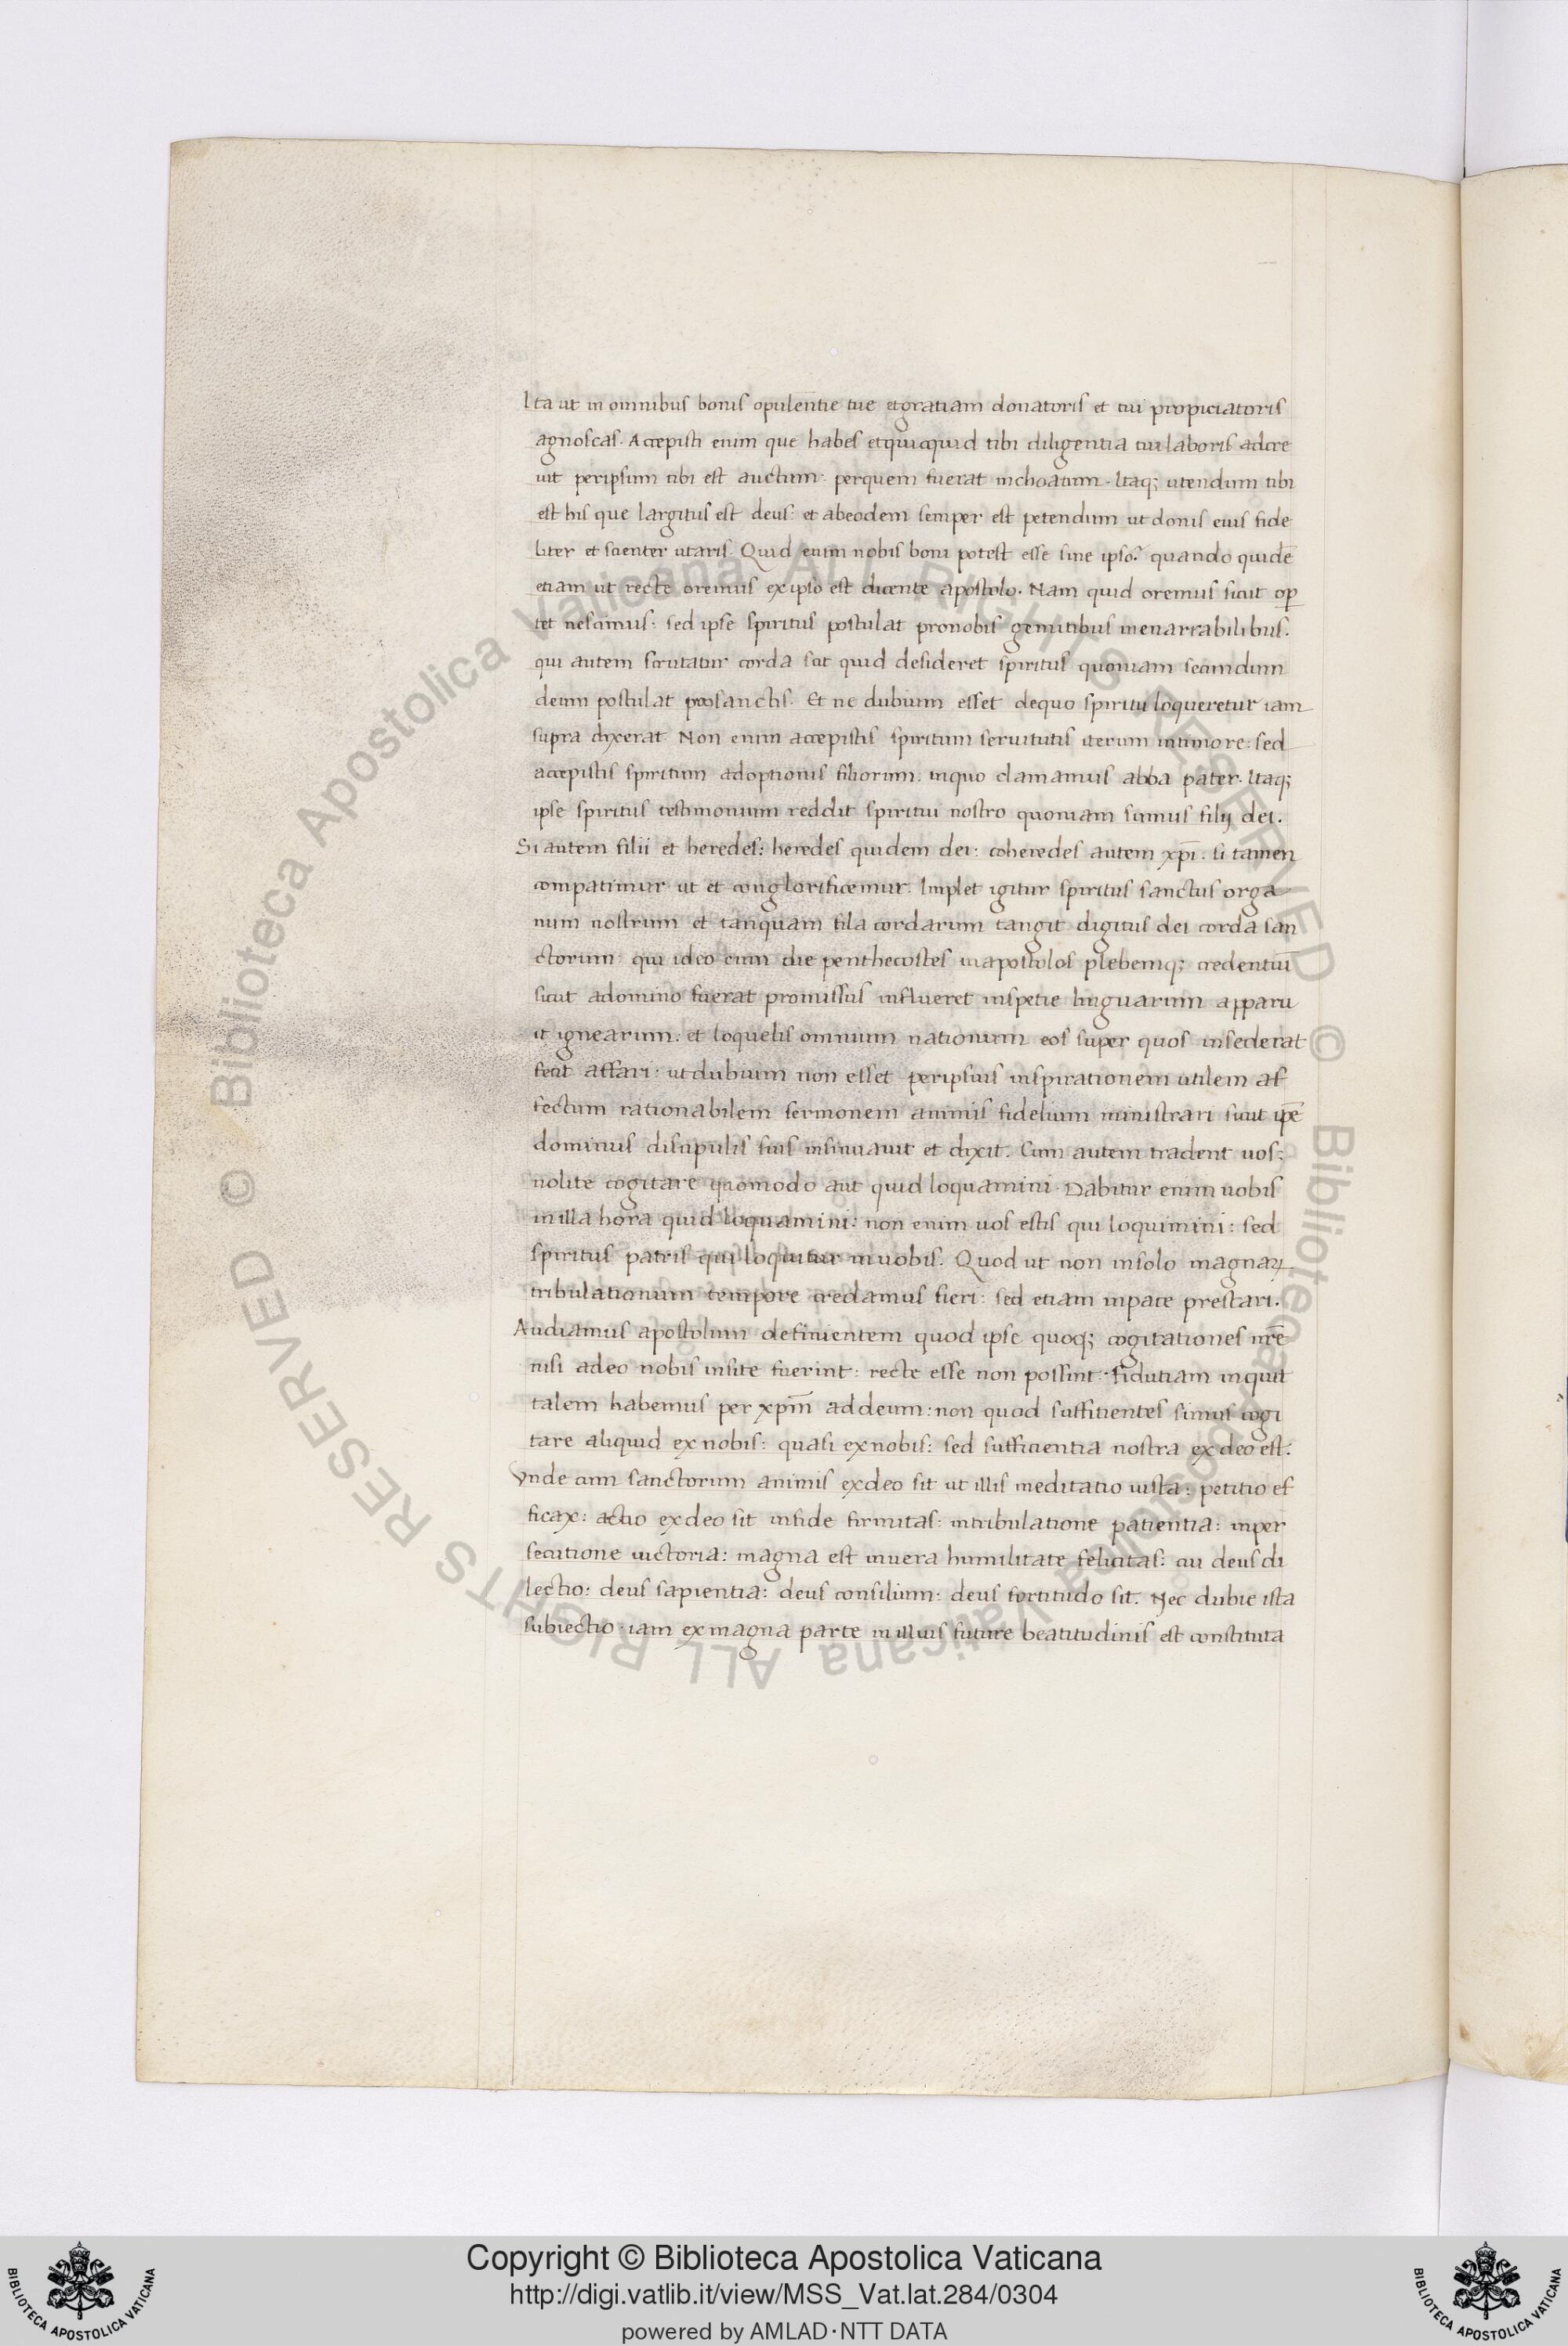 Ita ut in omnibus bonis opulentie tue et gratiam donatoris et tui propiciatoris
agnoscas. Accepisti enim que habes et quicquid tibi diligentia tui laboris adcre
uit per ipsum tibi est auctum: per quem fuerat inchoatum. Itaq; utendum tibi
est his que largitus est deus: et ab eodem semper est petendum ut donis eius fide
liter et scienter utaris. Quid enim nobis boni potest esse sine ipso? quando quidē
etiam ut recte oremus ex ipso est dicente apostolo. Nam quid oremus sicut op̄
tet nescimus: sed ipse spiritus postulat pro nobis gemitibus inenarrabilibus.
qui autem scrutatur corda scit quid desideret spiritus quoniam secundum
deum postulat pro sanctis. Et ne dubium esset de quo spiritu loqueretur iam
supra dixerat Non enim accepistis spiritum seruitutis iterum in timore: sed
accepistis spiritum adoptionis filiorum: in quo clamamus abba pater. Itaq;
ipse spiritus testimonium reddit spiritui nostro quoniam sumus filij dei.
Si autem filii et heredes: heredes quidem dei: coheredes autem xp̄i. si tamen
compatimur ut et conglorificemur. Implet igitur spiritus sanctus orga
num nostrum et tanquam fila cordarum tangit digitus dei corda san
ctorum: qui ideo cum die penthecostes in apostolos plebemq; credentiū
sicut a domino fuerat promissus influeret in spetie linguarum apparu
it ignearum: et loquelis omnium nationum eos super quos insederat
fecit affari: ut dubium non esset per ipsius inspirationem utilem af
fectum rationabilem sermonem animis fidelium ministrari sicut ip̄e
dominus discipulis suis insinuauit et dixit. Cum autem tradent uos:
nolite cogitare quomodo aut quid loquamini. Dabitur enim uobis
in illa hora quid loquamini: non enim uos estis qui loquimini: sed
spiritus patris qui loquitur in uobis. Quod ut non in solo magnaꝝ
tribulationum tempore credamus fieri: sed etiam in pace prestari.
Audiamus apostolum definientem quod ipse quoq; cogitationes nr̄e
nisi a deo nobis insite fuerint: recte esse non possint. fidutiam inquit
talem habemus per xpm̄ ad deum: non quod suffitientes simus cogi
tare aliquid ex nobis: quasi ex nobis: sed sufficientia nostra ex deo est.
Vnde cum sanctorum animis ex deo sit ut illis meditatio iusta: petitio ef
ficax: actio ex deo sit in fide firmitas: in tribulatione patientia: in per
secutione uictoria: magna est in uera humilitate felicitas: cui deus di
lectio: deus sapientia: deus consilium: deus fortitudo sit. Nec dubie ista
subiectio iam ex magna parte in illius future beatitudinis est constituta
© Biblioteca Apostolica Vaticana ALL RIGHTS RESERVED © Biblioteca Apostolica Vaticana ALL RIGHTS RESERVED
Copyright © Biblioteca Apostolica Vaticana
http://digi.vatlib.it/view/MSS_Vat.lat.284/0304
powered by AMLAD·NTT DATA
BIBLIOTECA APOSTOLICA VATICANA
BIBLIOTECA APOSTOLICA VATICANA